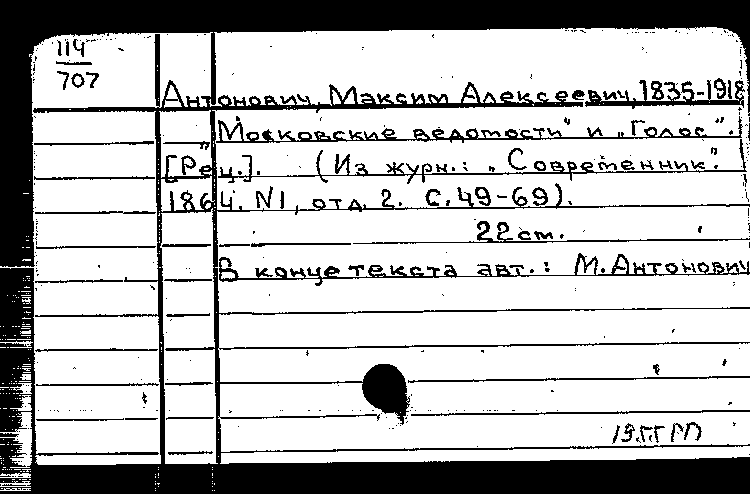 114
707
Антонович, Максим Алексеевич, 1835-1918
„Московские ведомости“ и „Голос“.
[Рец.]. (Из журн.: „Современник“.
1864. N1, отд. 2. С. 49-69).
22 ст.
В конце текста авт.: М. Антонович